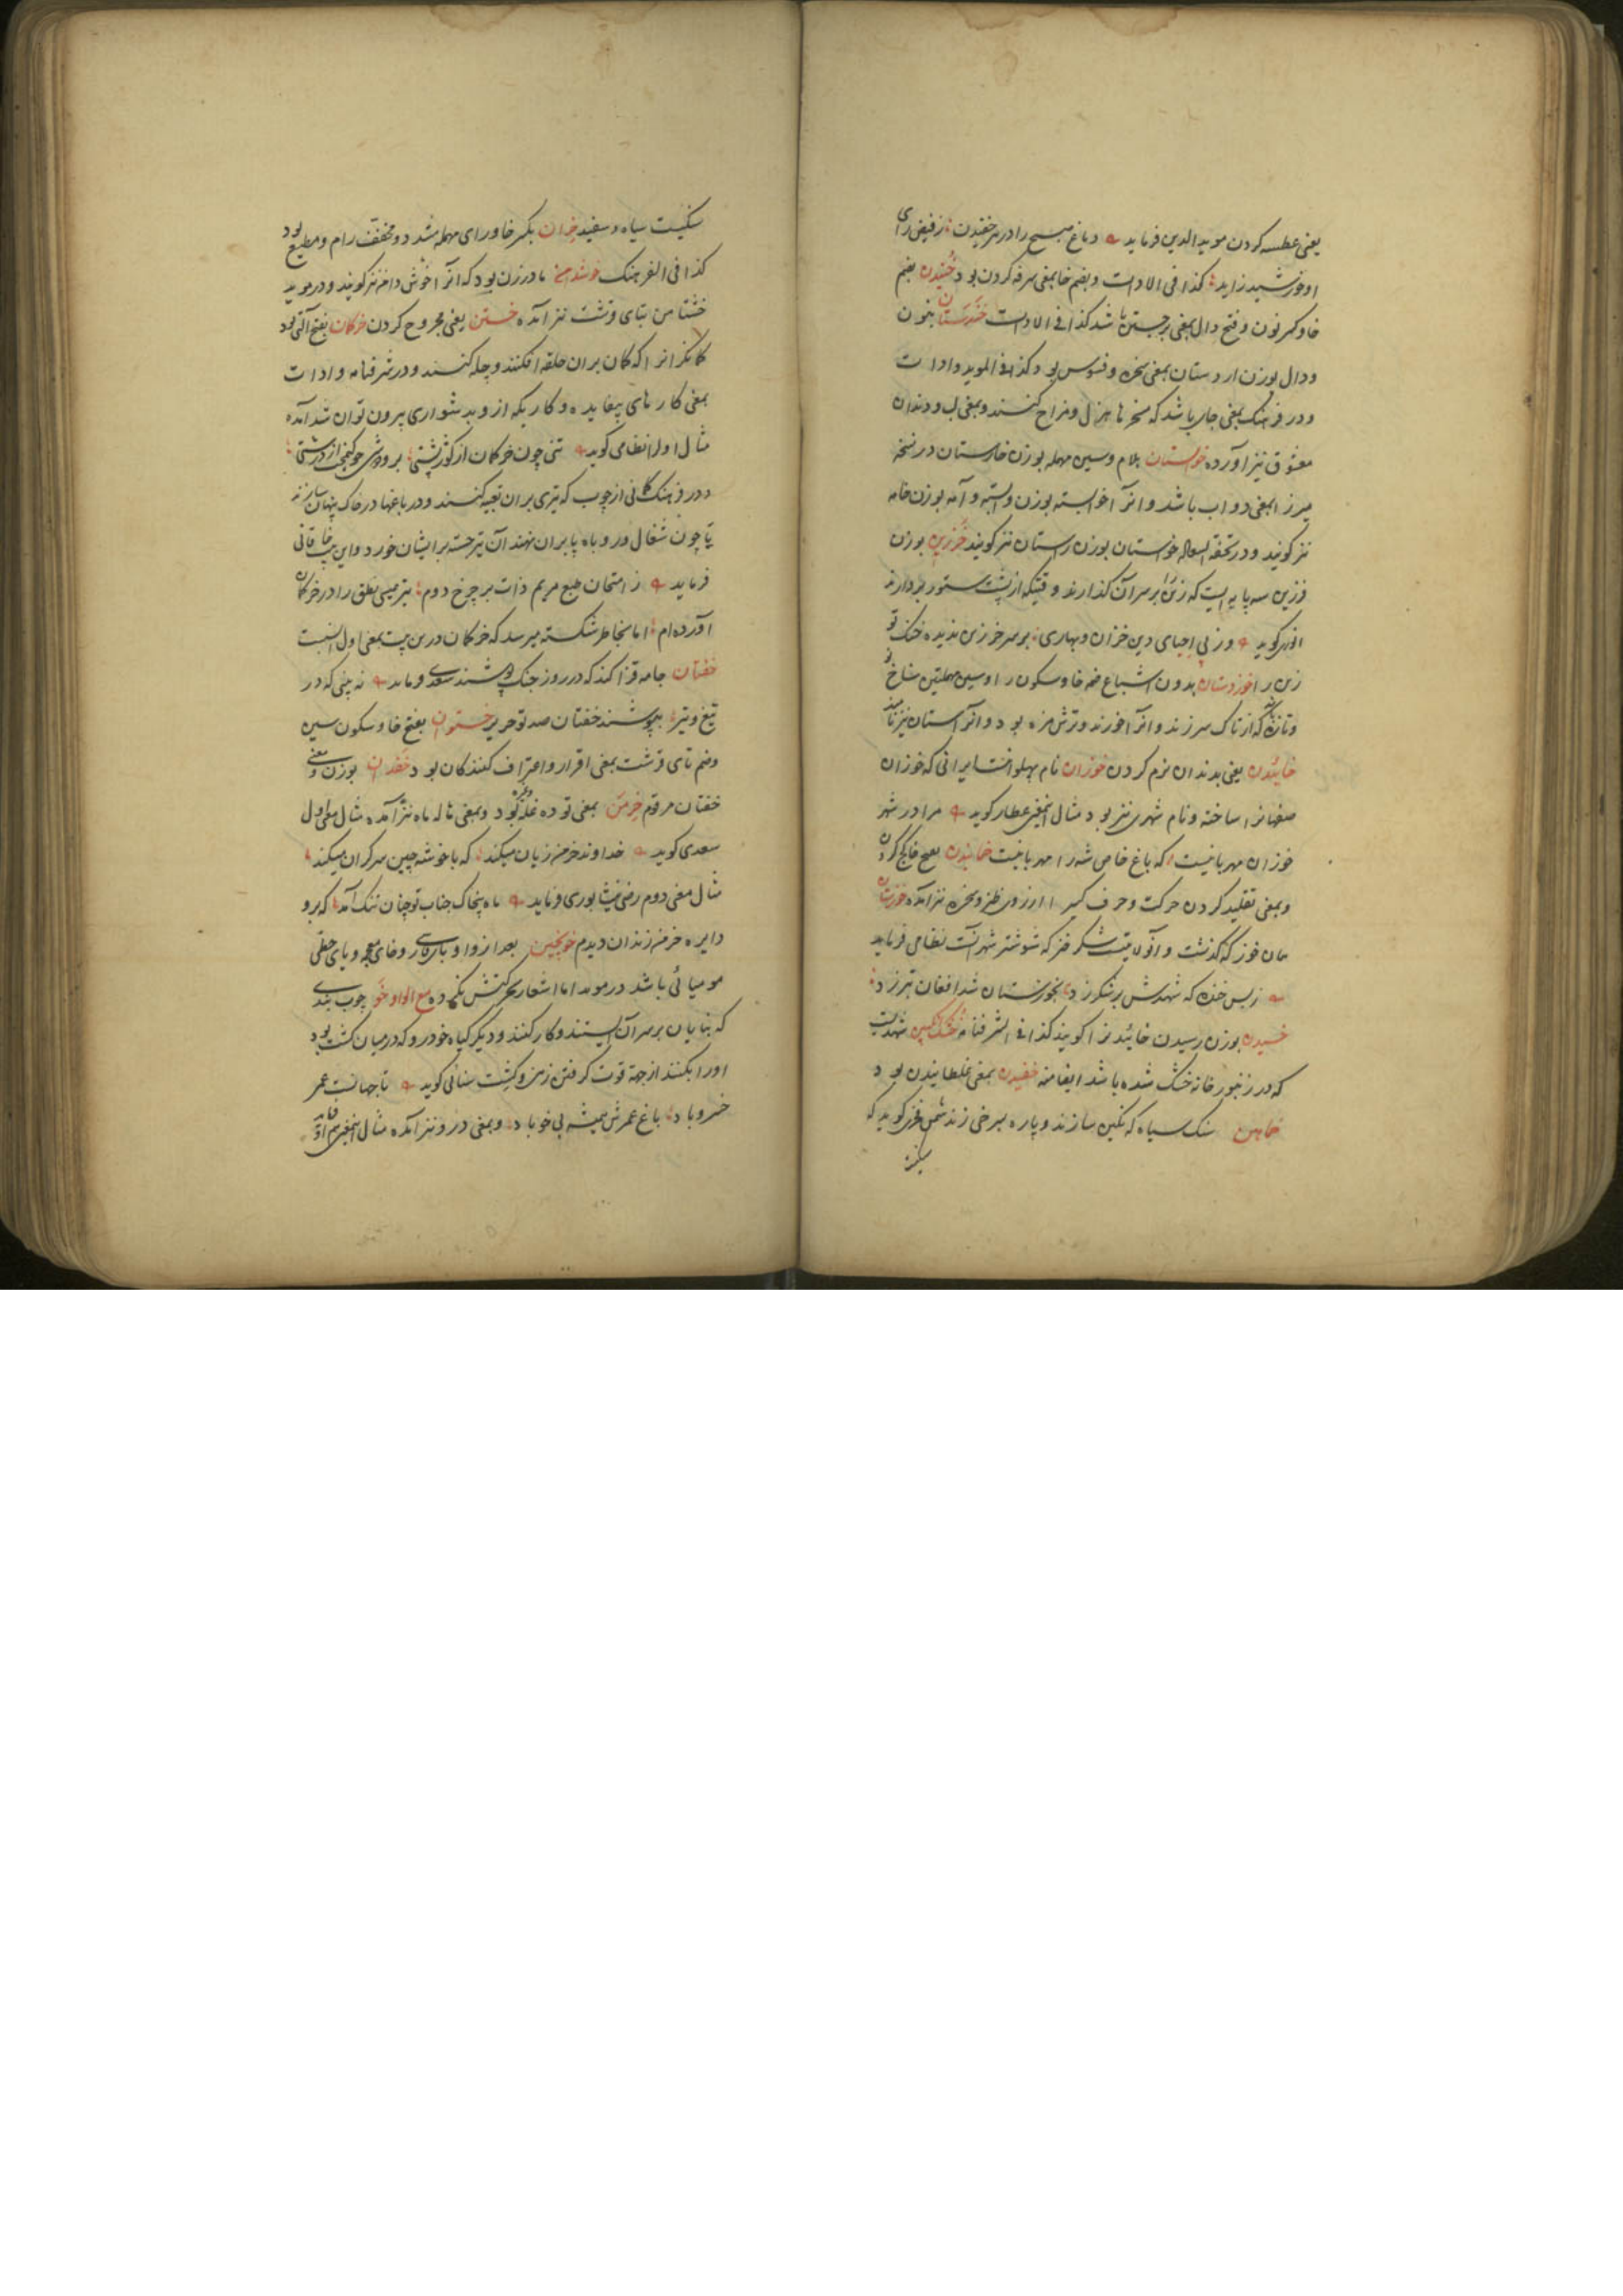 یعنی عطسه کردن موید الدین فرماید دماغ صبح را در سر خفیدن ز فیض رای
او خورشید زاید کذا فی الادات و بضم خا بمعنی سرفه کردن بود خنیدن بضم
خا و کسر نون و فتح دال بمعنی برجستن باشد کذا فی الادات خندستان بنون
و دال بوزن اردستان بمعنی سخره و فسوس بود کذا فی الموید و ادات
و در فرهنگ بمعنی جای باشد که مسخرها هزل و مزاح کنند و بمعنی لب و دندان
معشوق نیز آورده خواستان بلام و سین مهمله بوزن خارستان در نسخه
میرزا بمعنی دواب باشد و آنرا خواسته بوزن و آمه بوزن خامه
نیز گویند و در تحفة السعاده خوستان بوزن رستان نیز گویند خرزین بوزن
فرزین سه پایه ایست که زین بر سر آن گذارند وقتیکه از پشت ستور بردارند
انوری گوید وز پی احیای دین خزان و بهاری بر سر خرزین ندیده خنک تو
زین را خوردستان بدون اشباع ضمه خا و سکون را و سین مهملتین شاخ
و تازه که از تاک سر زند و آنرا خورند و ترش مزه بود و آنرا ستان نیز نامند
خائیدن یعنی بدندان نرم کردن خوزان نام پهلوانیست ایرانی که خوزان
صفهانرا ساخته و نام شهری نیز بود مثال این معنی عطار گوید مرا در شهر
خوزان مهربانیست که باغ خاص شه را مهربانیست خانیدن کج کردن
و بمعنی تقلید کردن حرکت و حرف کسی را از روی طنز و سخره نیز آمده خوزستان
همان خوز که گذشت و آن ولایتیست شکر خیز که شوشتر شهر آنست نظامی فرماید
ز بس خنده که شهدش بر شکر زد بخوزستان شد افغان تبرزد
خسیدن بوزن رسیدن خائیدن را گویند کذا فی الشرفنامه خشک انگبین شهدیست
که در زنبور خانه خشک شده باشد ایضا منه خفیدن بمعنی غلطانیدن بود
خاهن سنک سیاه که نگین سازند و پاره سرخی زند شمس فخری گوید که

سکیست سیاه و سفید خران بکسر خا و رای مهمله مشدد و مخفف رام و مطیع بود
کذا فی الفرهنک خوشدامن مادر زن بود که آنرا خوش دامن نیز گویند و در موید
خشتامن بتای قرشت نیز آمده خستن یعنی مجروح کردن خرکان بفتح آلتی بود
کمانگرانرا که کمان بران حلقه افکنند و چله کنند و در شرفنامه و ادات
بمعنی کارهای بیفایده و کاریکه از و بدشواری بیرون توان شد آمده
مثال اول را نظامی گوید تنی چون خرکمان از کوژپشتی بر و پوشی چو کیمخت از درشتی
و در فرهنک کمانی از چوب که تیری بران تعبیه کنند و در باغها در خاک پنهان سازند
تا چون شغال و روباه پا بران نهند آن تیر جسته بر ایشان خورد و این بیت خاقانی
فرماید ز امتحان طبع مریم ذات بر چرخ دوم تیر عیسی نطق را در خرکمان
آورده ام اما بخاطر شکسته میرسد که خرکمان درین بیت بمعنی اول انسبت
خفتان جامه قزاکند که در روز جنک پوشند سعدی فرماید نه بینی که در
تیغ و تیر بپوشند خفتان صد تو حریر خستون بفتح خا و سکون سین
و ضم تای قرشت بمعنی اقرار و اعتراف کنندگان بود خفدان بوزن و معنی
خفتان مرقوم خرمن بمعنی توده غله بود و بمعنی هاله ماه نیز آمده مثال معنی اول
سعدی گوید خداوند خرمن زیان میکند که با خوشه چین سر گران میکند
مثال معنی دوم رضی نیشابوری فرماید ماه بخاک جناب تو چنان تنک آمد که برو
دایره خرمن زندان دیدم خوبخین بعد از واو بای پارسی و خای معجمه و یای حطی
مومیائی باشد در موید اما اشعار بحرکتش نکرده مع الواو خو چوب بندی
که بنایان بر سر آن ایستند و کار کنند و دیگر گیاه خودرو که در میان کشت بود
او را بکنند از جهة قوت گرفتن زمین و کشت سنائی گوید تا جهانست عمر
خسرو باد باغ عمرش همیشه بی خو باد و بمعنی درو نیز آمده مثال این معنی هم او فرماید